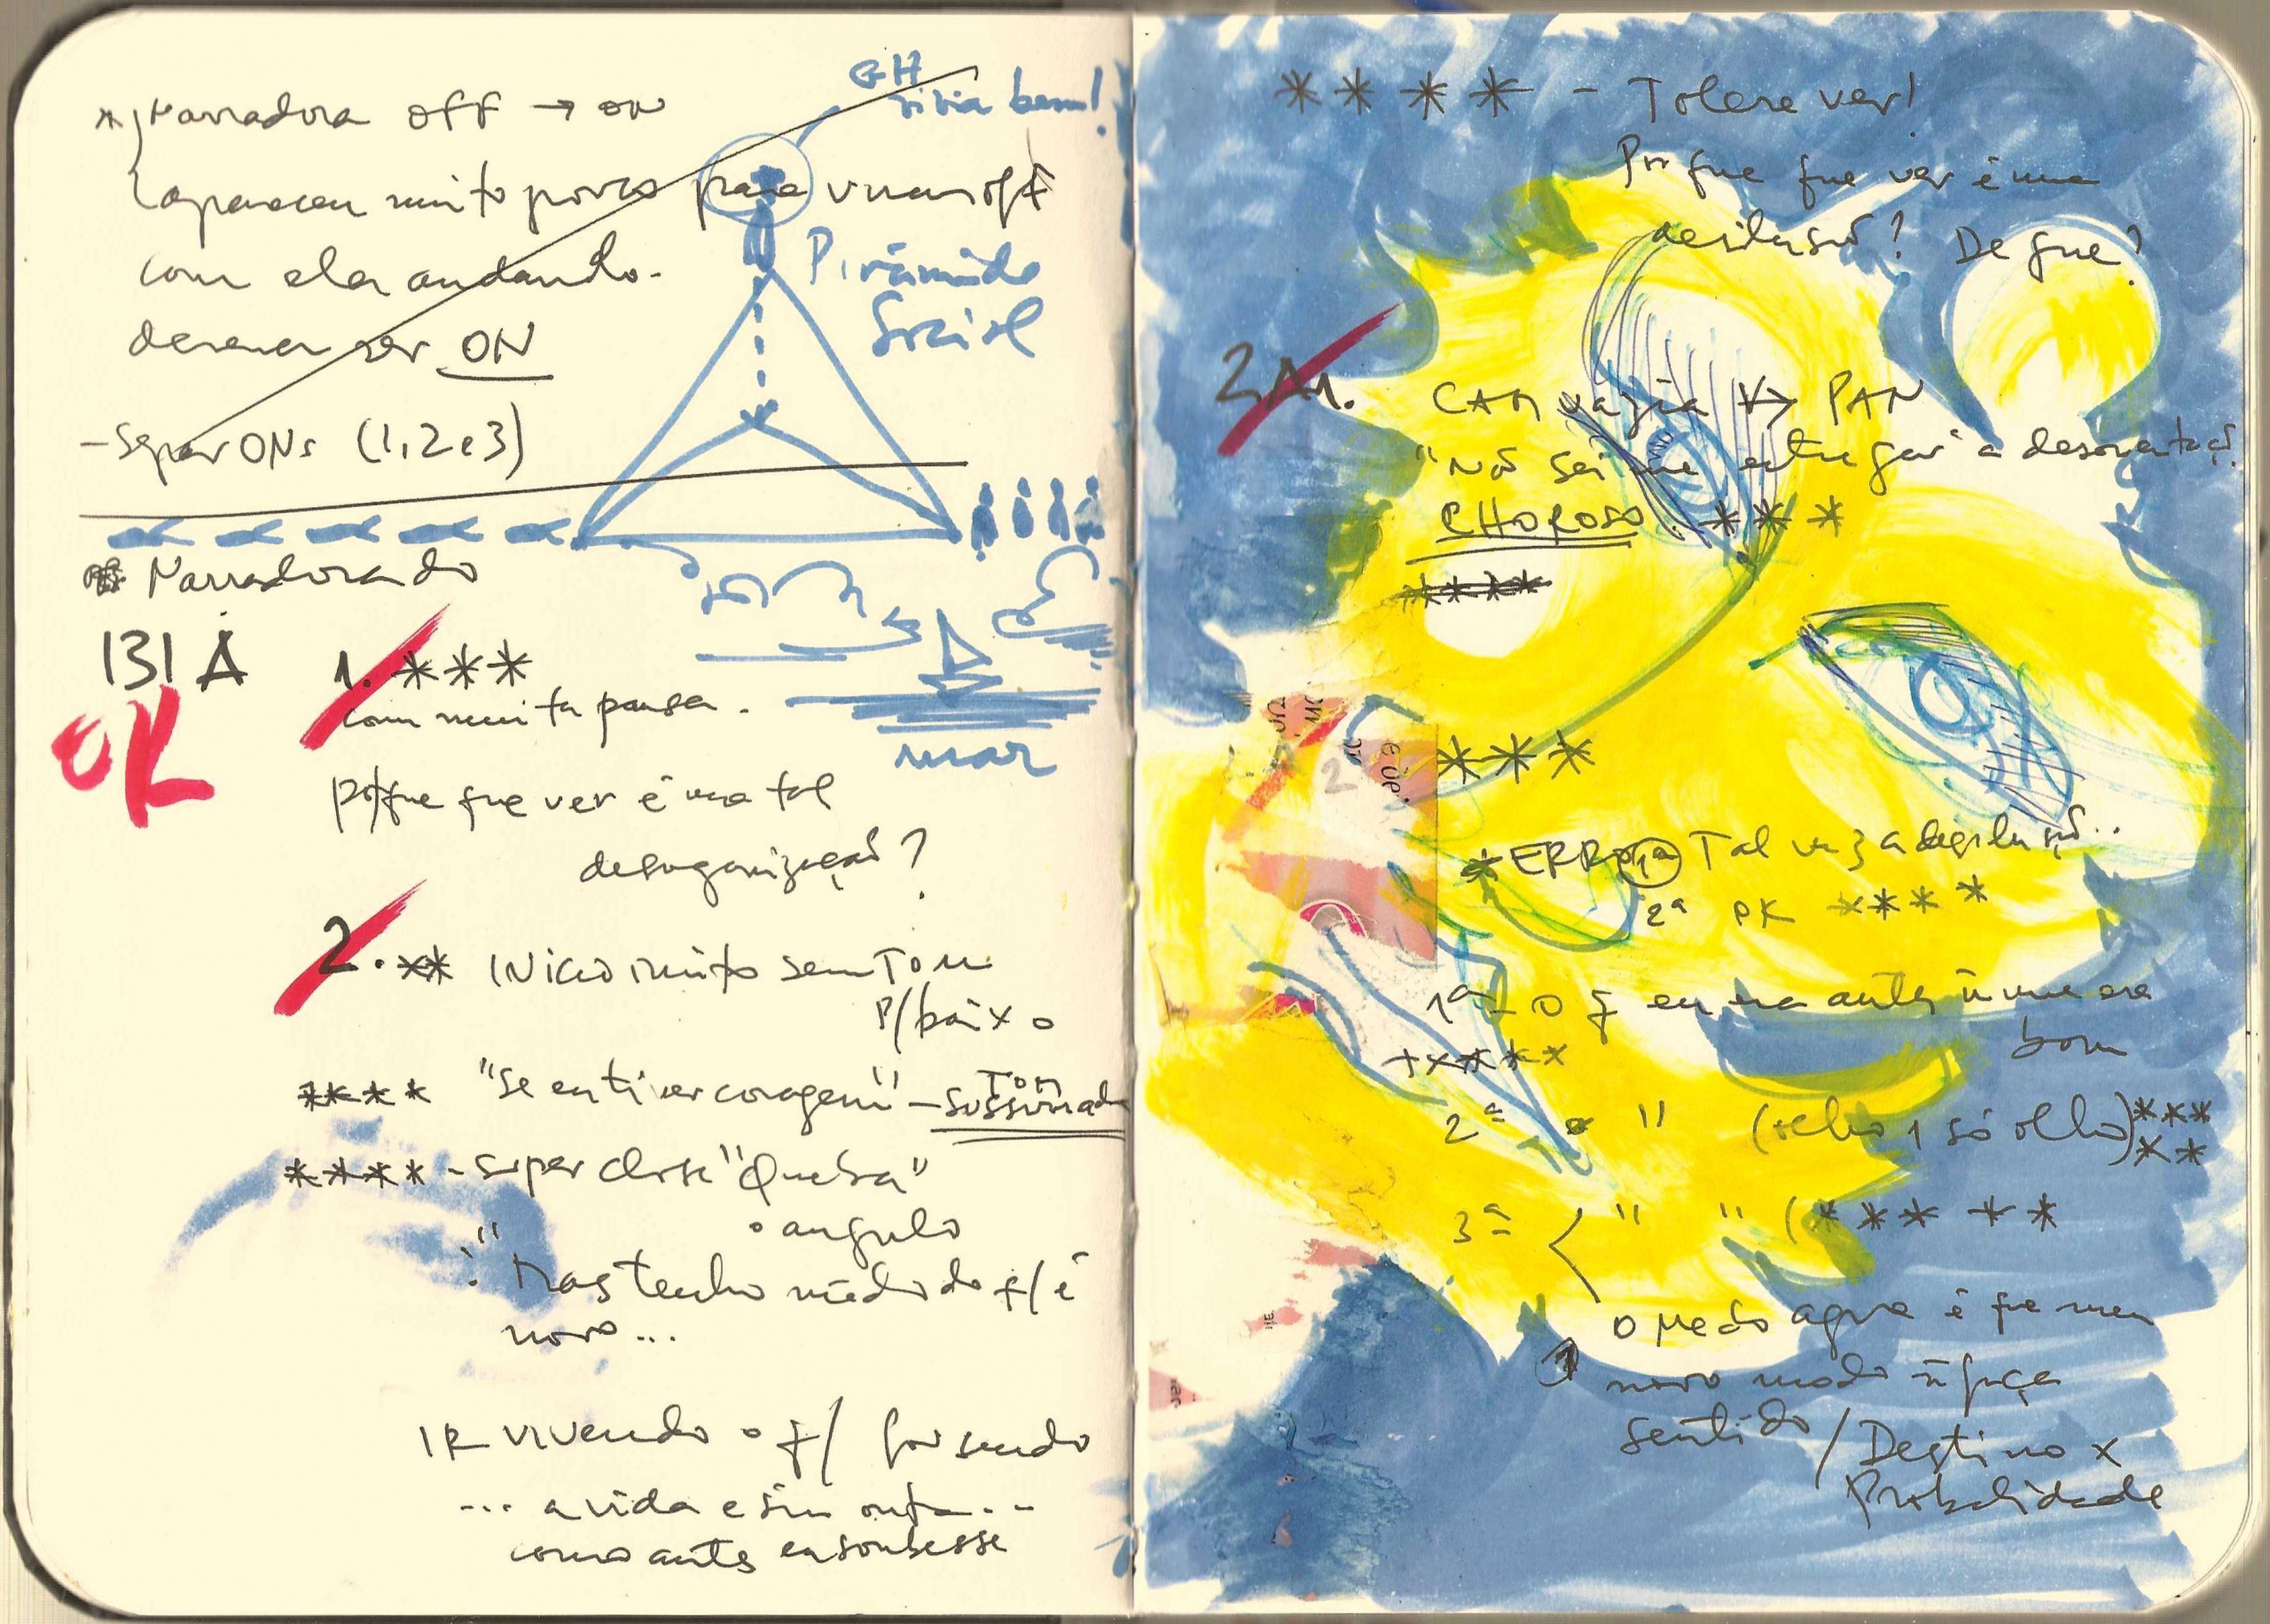 *) Narradora OFF → ON
GH
vivia bem!
aparecem muito pouco para virar off
com ela andando.
devem ser ON
- Separ ONs (1, 2 e 3)
Pirâmide
Social
Narradora do
131 A
OK
1. ***
com muita pausa.
p/que que ver é uma tal
desorganização?
mar
2. ** INício muito sem Tom
p/baixo
**** "Se eu tiver coragem" - Tom
sussurrado
**** - super close "Queba"
• angulo
"Mas tenho medo do q/ é
novo...
IR vivendo o q/ for sendo
... a vida e sim outra...
como antes eu soubesse
**** - Tolere ver!
Por que que ver é uma
desilusão? De que?
2A1.
CAM vazia → PAN
"Não sei me entregar a desorientação.
CHOROSO. ***
****
***
* ERRO 1ª Talvez a desilusão..
2ª OK ****
1ª - o q eu era antes ñ me era
bom
+****
2ª " (olho 1 só olho) ***
**
3ª " " (*** **
O Medo agora é que meu
novo modo ñ faça
sentido / Destino x
Probalidade